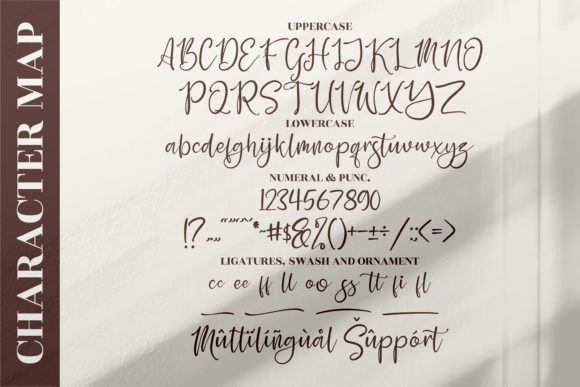 CHARACTER MAP
UPPERCASE
ABCDEFGHIJKLMNO
PQRSTUVWXYZ
LOWERCASE
abcdefghijklmnopqrstuvwxyz
NUMERAL & PUNC.
1234567890
#$&%()+−±÷/:;<=>
LIGATURES, SWASH AND ORNAMENT
cc ee ff ll oo ss tt fi fl
Mûttïlíñgùål Šûppórt